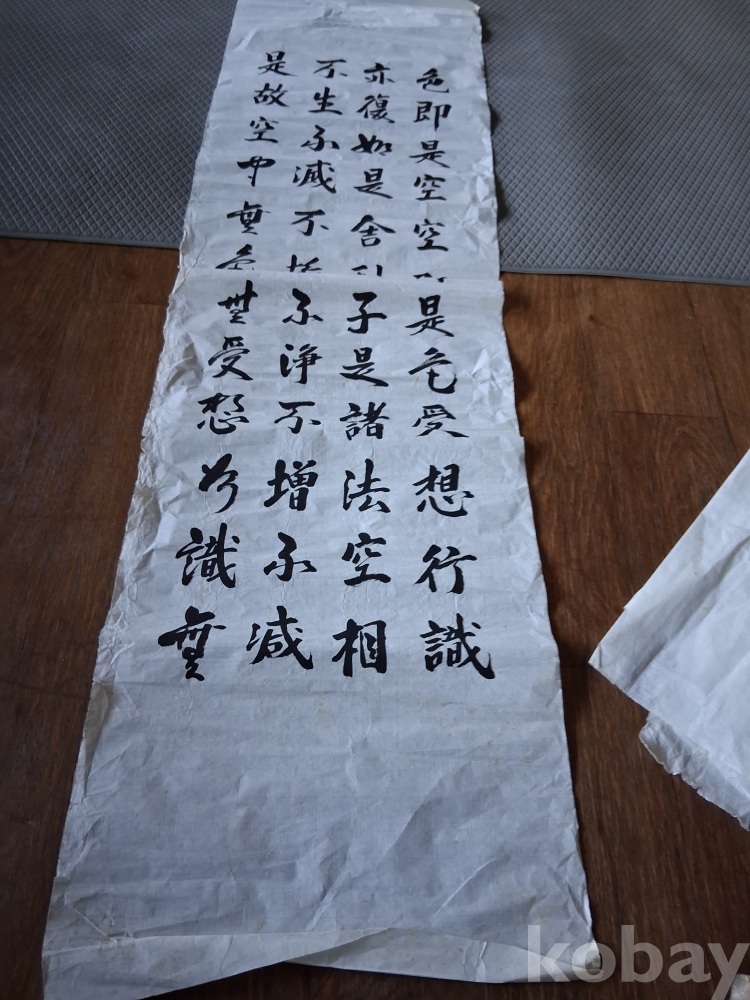 色即是空空是色受想行識
亦復如是舍子是諸法空相
不生不滅不不淨不增不減
是故空中無色無受想行識無
kobay